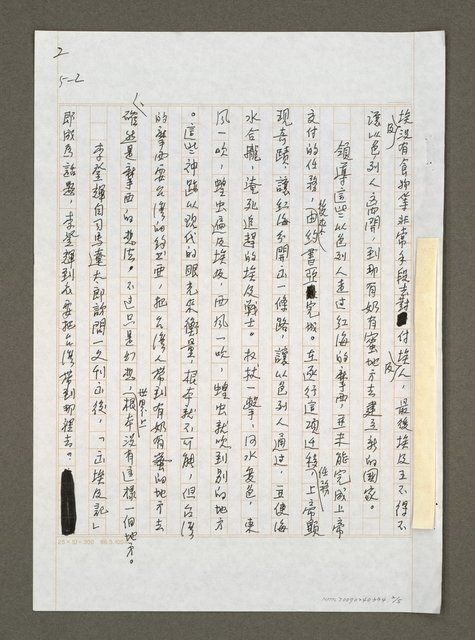 2
5-2
埃沒有食物等非常手段去對付埃及人，最後埃及王不得不
讓以色列人離開，到那有奶有蜜地方去建立新的國家。
領導這些以色列人走過紅海的摩西，并未能完成上帝
交付的任務，由後世約書亞完成。在逐行這項遷移任務，上帝顯
現奇蹟，讓紅海分開出一條路，讓以色列人通過，且使海
水合攏淹死追趕的埃及戰士。杖杖一擊，河水變色，東
風一吹，蝗虫遍及埃及，西風一吹，蝗虫就吹到別的地方
。這些神蹟以現代的眼光來衡量，根本就不可能，但台灣
的摩西要台灣的約出亞，把台灣人帶到有奶有蜜的地方去
確然是摩西的想法。不過只是幻想，世界上根本沒有這樣一個地方。
李登輝自司馬遼太郎訪問一文刊出後，「出埃及記」
即成為話題，李登輝到底要把台灣帶到那裡去。
25×12=300